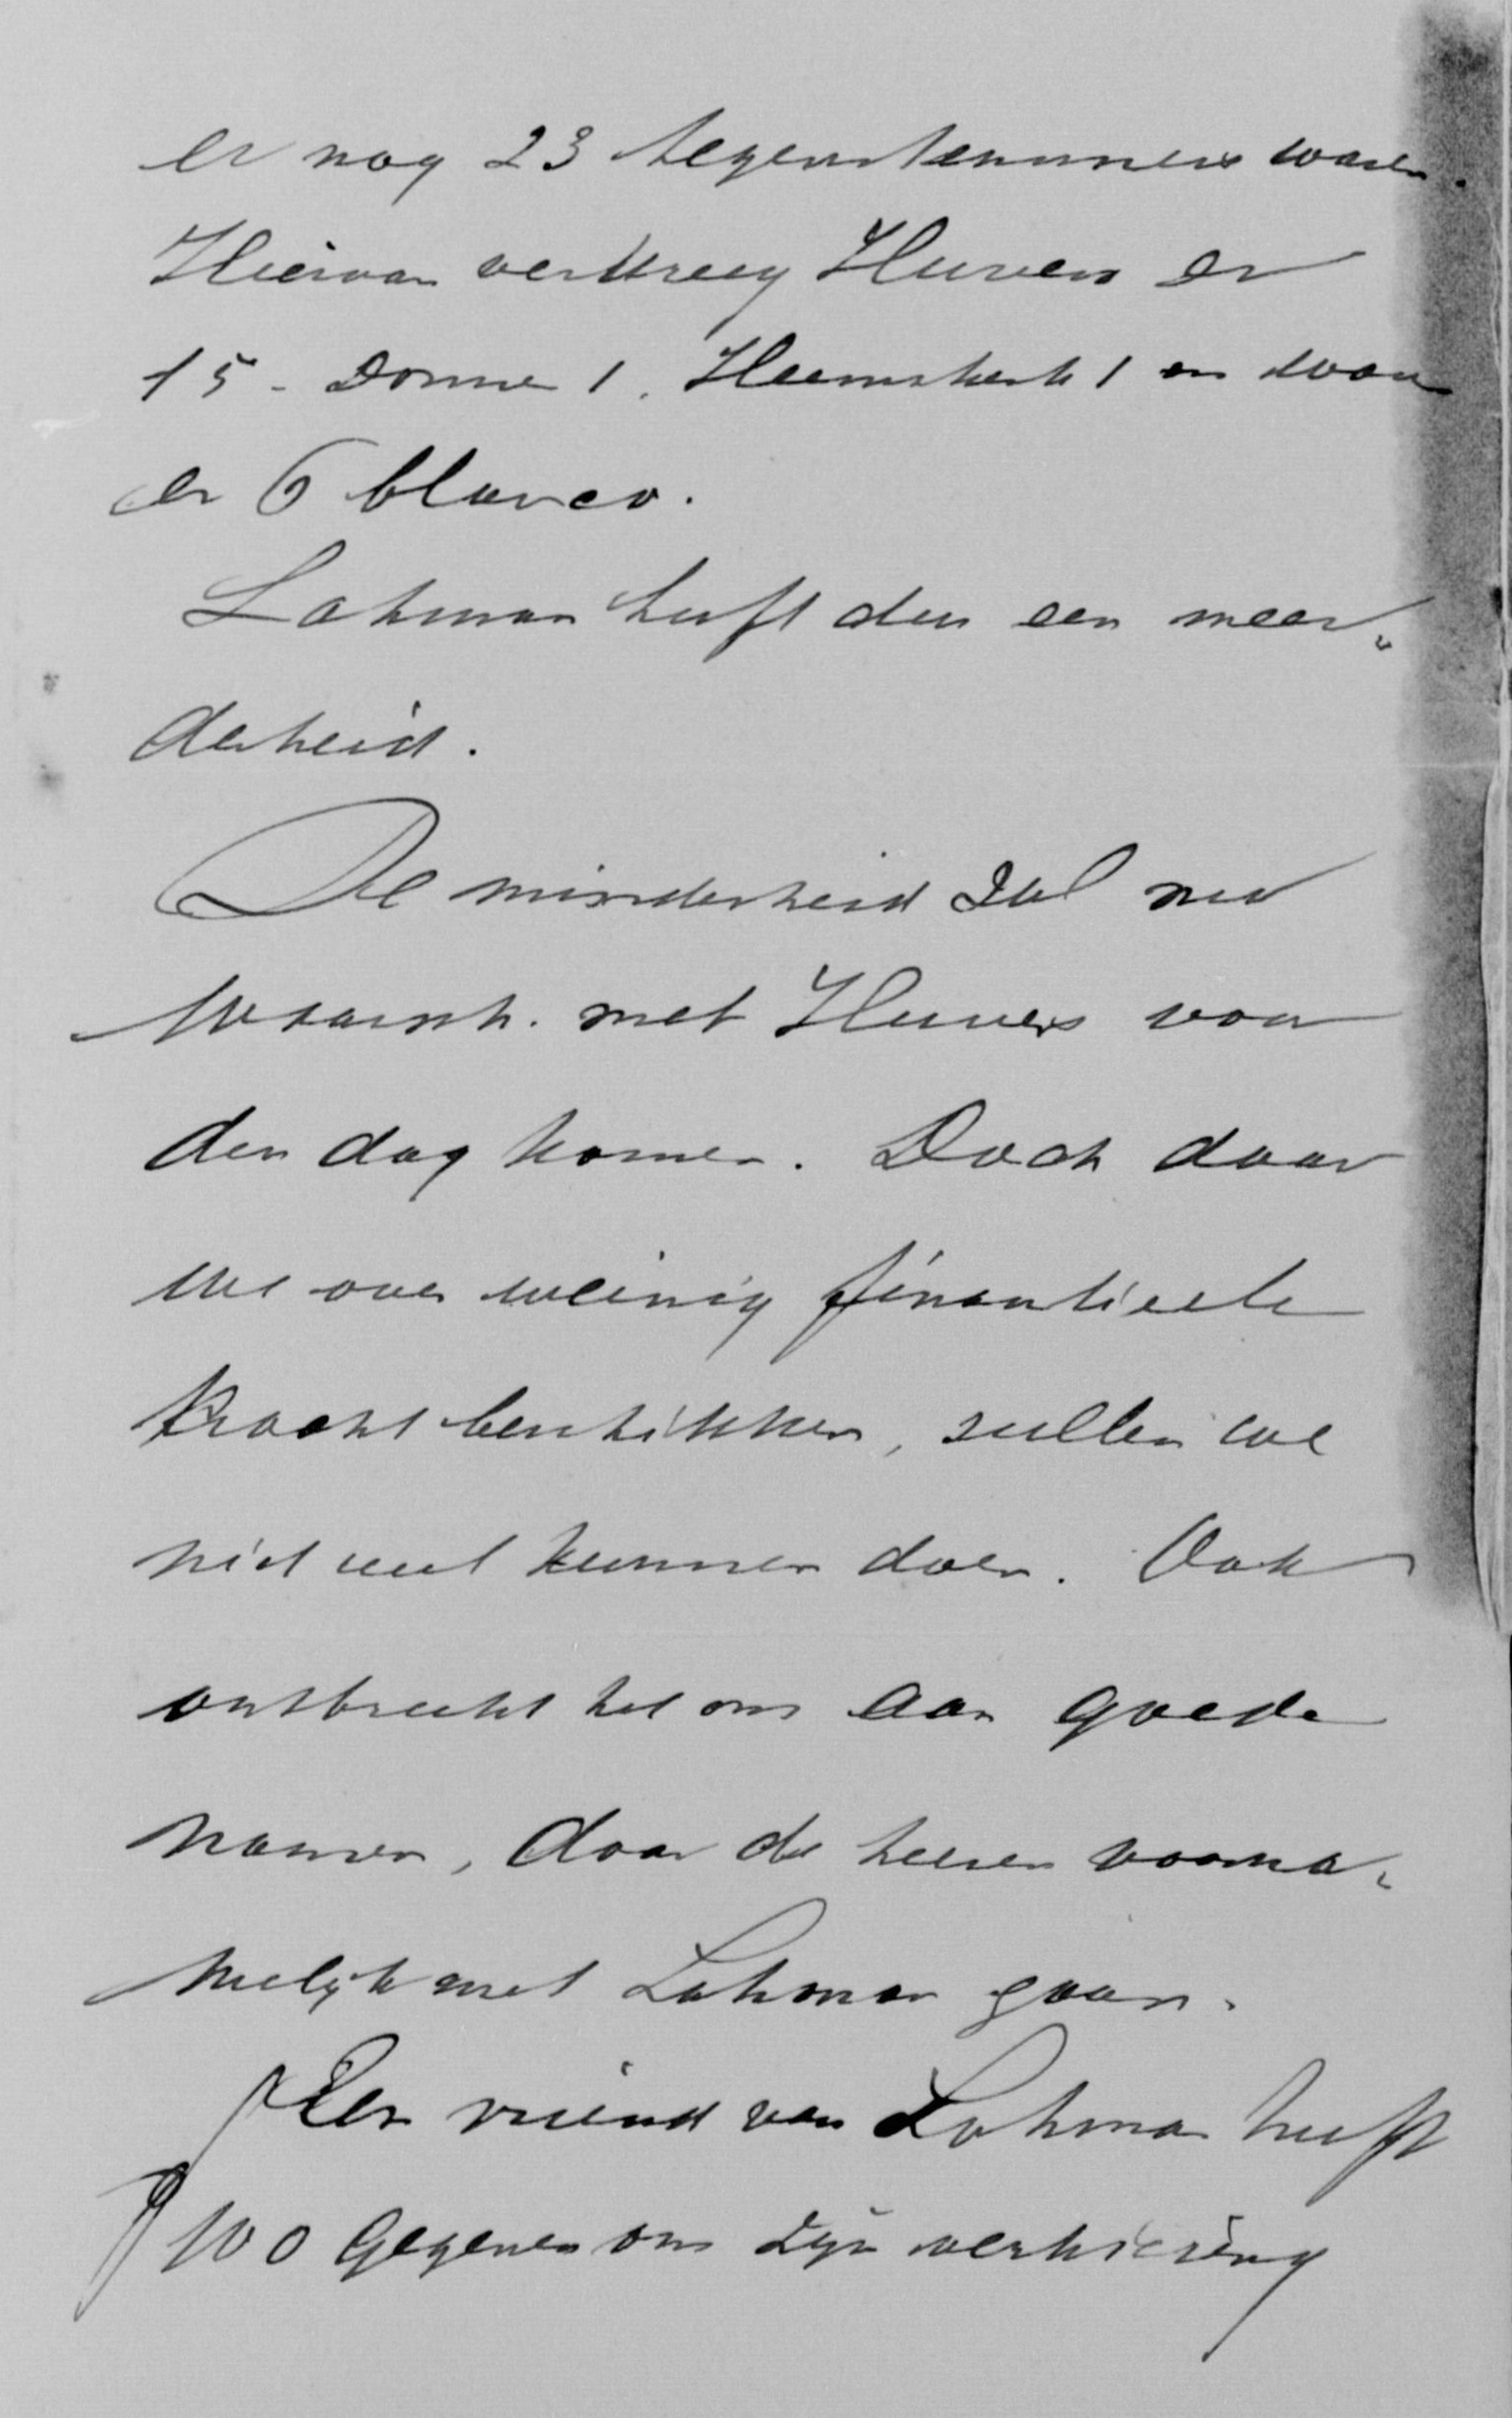 er nog 23 tegenstemmers waren.
Hiervan verkreeg Huver er
15 - Donner 1, Heemskerk 1 en waren
er 6 blanco.
Lohman heeft dus een meer„
derheid.
De minderheid zal nu
waarsch. met Huver voor
den dag komen. Doch daar
we over weinig financieele
kracht beschikken, zullen we
niet veel kunnen doen. Ook
ontbreekt het ons aan goede
namen, daar de heeren voorna„
melijk met Lohman gaan.
Een vriend van Lohman heeft
f 100 gegeven om zijn verkiezing